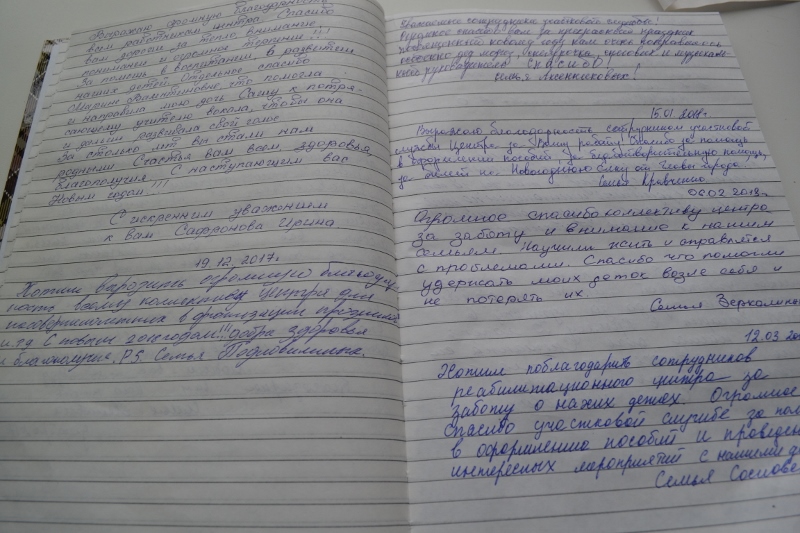 Выражаю огромную благодарность
всем работникам центра. Спасибо
вам всем за тепло внимание
понимание и огромное терпение!!!
За помощь в воспитании и развитии
наших детей. Отдельное спасибо
Марине Валентиновне что помогла
и направила мою дочь Сашу к потря-
сающему учителю вокала, чтобы она
и дальше развивала свой голос
За столько лет вы стали нам
родными Счастья вам всем, здоровья
благополучия. С наступающим вас
Новым годом!!!
С искренним уважением
к вам Сафронова Ирина
19.12.2017г
Хотим выразить огромную благодар-
ность всему коллективу Центра для
несовершеннолетних в организации праздников
и.т.д С новым 2018годом!!! добра здоровья
и благополучия. P.S. Семья
Уважаемые сотрудники участковой службы!
Огромное спасибо вам за прекрасный праздник
посвященный новому году, нам очень понравилось
особенно дед мороз, снегурочка,
руководителю СПАСИБО!
Семья
15.01.2018г.
Выражаю благодарность сотрудникам участковой
службы Центра за Вашу работу. Спасибо за помощь
в оформлении пособий, за благотворительную помощь,
за билет на Новогоднюю ёлку от Главы города!
Семья Кравченко
06.02.2018г.
Огромное спасибо коллективу центра
за заботу и внимание к нашим
семьям Научили жить и справляться
с проблемами. Спасибо что помогли
удержать моих деток возле себя и
не потерять их
Семья
12.03.20
Хотим поблагодарить сотрудников
реабилитационного центра за
заботу о наших детях. Огромное
спасибо участковой службе за пом
в оформлению пособий и проведен
интересных мероприятий с нашими д
Семья Соснове